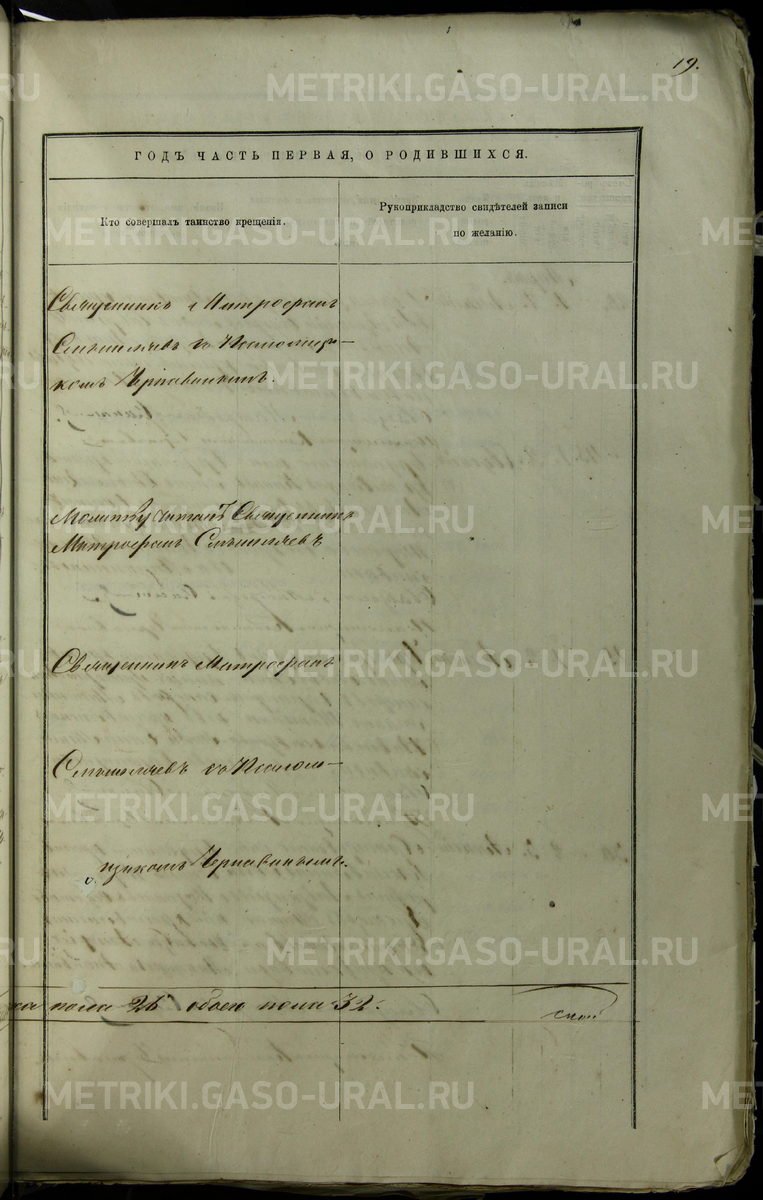 19.
ГОДЪ ЧАСТЬ ПЕРВАЯ, О РОДИВШИХСЯ.
Кто совершалъ таинство крещенія.
Рукоприкладство свидѣтелей записи
по желанію.
Священникъ Митрофанъ
Смышляевъ съ Псаломщи-
комъ Чернавинымъ.
Молитву читалъ Священникъ
Митрофанъ Смышляевъ
Священникъ Митрофанъ
Смышляевъ съ Псалом-
щикомъ Чернавинымъ.
пола 25 обоего пола 32.
METRIKI.GASO-URAL.RU